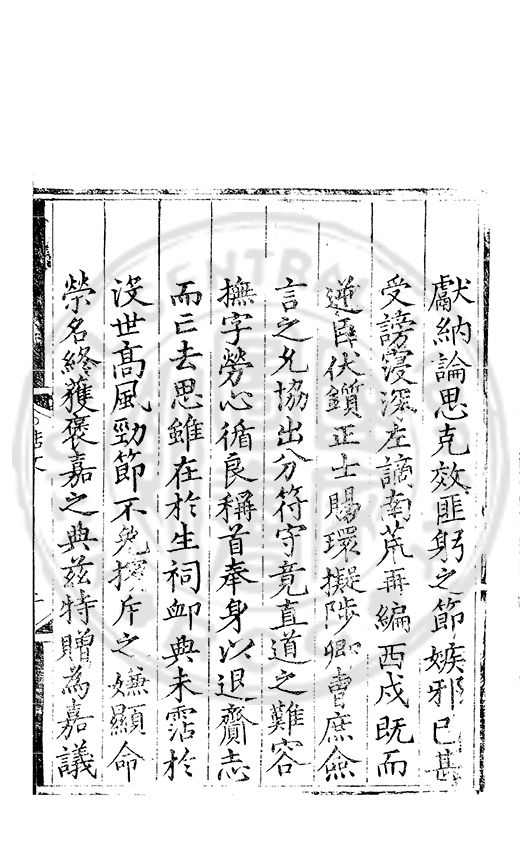 獻納論思克效匪躬之節嫉邪已甚
受謗寖深左謫南荒再編西戍既而
逆臣伏鑕正士賜環擬陟卿曹庶僉
言之允協出分符守竟直道之難容
撫字勞心循良稱首奉身以退齎志
而亡去思雖在於生祠卹典未霑於
沒世高風勁節不免擯斥之嫌顯命
榮名終獲褒嘉之典茲特贈為嘉議